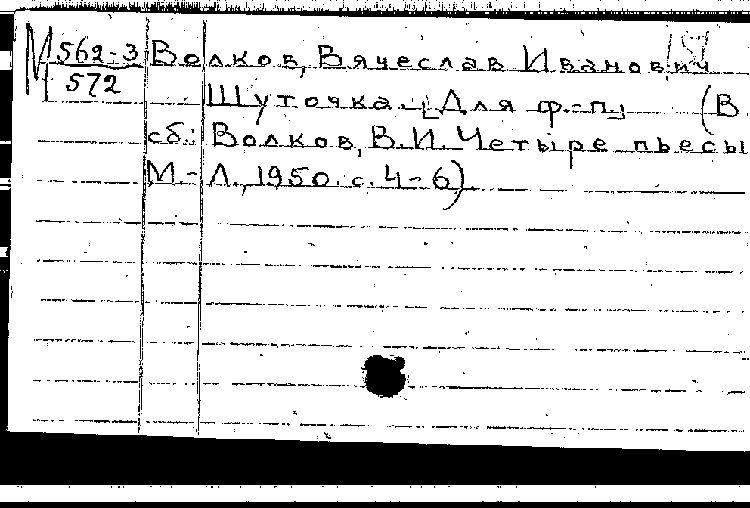 М 562-3 Волков, Вячеслав Иванович
572 Шуточка. [Для ф.-п.] (В
сб.: Волков, В.И. Четыре пьесы
М.-Л., 1950. с. 4-6)